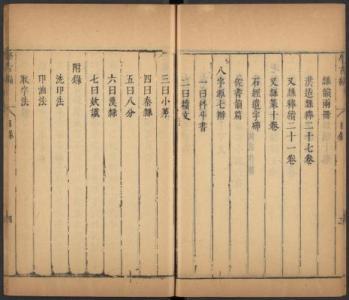 隸韻兩冊
洪适隸釋二十七卷
又隸釋續二十一卷
又隸纂十卷
石經遺字碑
佐書韻篇
八字源七辯
一曰科斗書
二曰籀文
三曰小篆
四曰秦隸
五曰八分
六曰漢隸
七曰欵識
附錄
洗印法
印油法
取字法
目錄